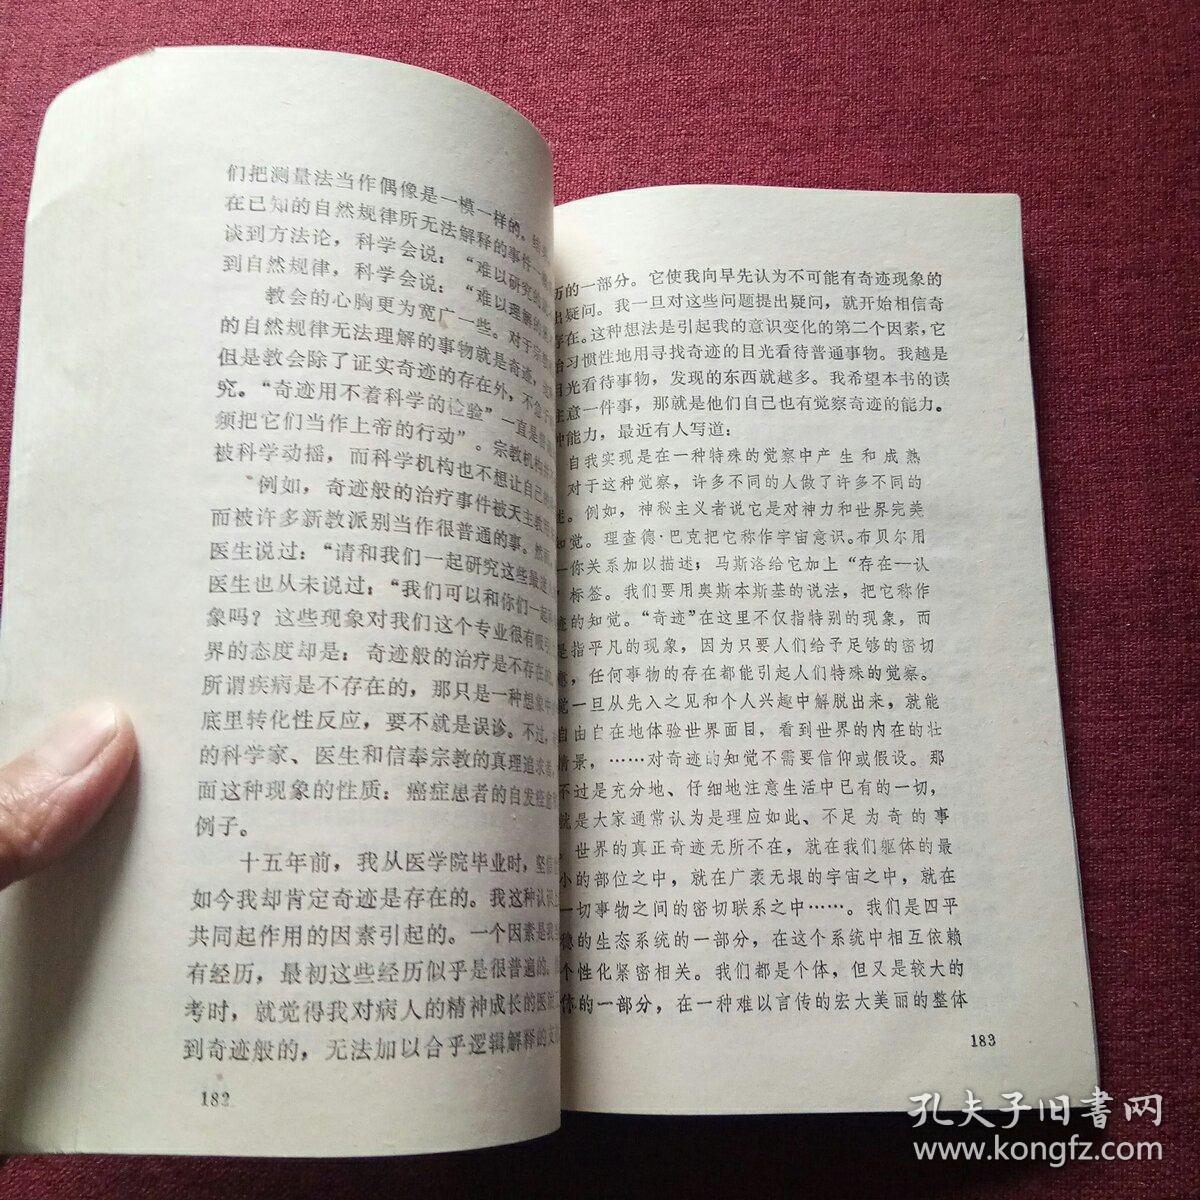 们把测量法当作偶像是一模一样的。
在已知的自然规律所无法解释的事件
谈到方法论，科学会说：“难以研究的
到自然规律，科学会说：“难以理解的
教会的心胸更为宽广一些。对于宗
的自然规律无法理解的事物就是奇迹，
但是教会除了证实奇迹的存在外，不
究。“奇迹用不着科学的检验”一直是
须把它们当作上帝的行动”。宗教机构
被科学动摇，而科学机构也不想让自己
例如，奇迹般的治疗事件被天主教
而被许多新教派别当作很普通的事。然
医生说过：“请和我们一起研究这些
医生也从未说过：“我们可以和你们一起
象吗？这些现象对我们这个专业很有吸
界的态度却是：奇迹般的治疗是不存在
所谓疾病是不存在的，那只是一种想象
底里转化性反应，要不就是误诊。不过，
的科学家、医生和信奉宗教的真理追求者，
面这种现象的性质：癌症患者的自发痊愈
例子。
十五年前，我从医学院毕业时，坚
如今我却肯定奇迹是存在的。我这种认识
共同起作用的因素引起的。一个因素是我
有经历，最初这些经历似乎是很普遍的。
考时，就觉得我对病人的精神成长的医
到奇迹般的，无法加以合乎逻辑解释的
182
历的一部分。它使我向早先认为不可能有奇迹现象的
出疑问。我一旦对这些问题提出疑问，就开始相信奇
存在。这种想法是引起我的意识变化的第二个因素，它
台习惯性地用寻找奇迹的目光看待普通事物。我越是
目光看待事物，发现的东西就越多。我希望本书的读
主意一件事，那就是他们自己也有觉察奇迹的能力。
中能力，最近有人写道：
自我实现是在一种特殊的觉察中产生和成熟
对于这种觉察，许多不同的人做了许多不同的
述。例如，神秘主义者说它是对神力和世界完美
知觉。理查德·巴克把它称作宇宙意识。布贝尔用
—你关系加以描述；马斯洛给它加上“存在—认
”标签。我们要用奥斯本斯基的说法，把它称作
迹的知觉。“奇迹”在这里不仅指特别的现象，而
是指平凡的现象，因为只要人们给予足够的密切
意，任何事物的存在都能引起人们特殊的觉察。
觉一旦从先入之见和个人兴趣中解脱出来，就能
自由自在地体验世界面目，看到世界的内在的壮
情景，……对奇迹的知觉不需要信仰或假设。那
不过是充分地、仔细地注意生活中已有的一切，
就是大家通常认为是理应如此、不足为奇的事
。世界的真正奇迹无所不在，就在我们躯体的最
小的部位之中，就在广袤无垠的宇宙之中，就在
一切事物之间的密切联系之中……。我们是四平
稳的生态系统的一部分，在这个系统中相互依赖
个性化紧密相关。我们都是个体，但又是较大的
体的一部分，在一种难以言传的宏大美丽的整体
183
孔夫子旧書网
www.kongfz.com